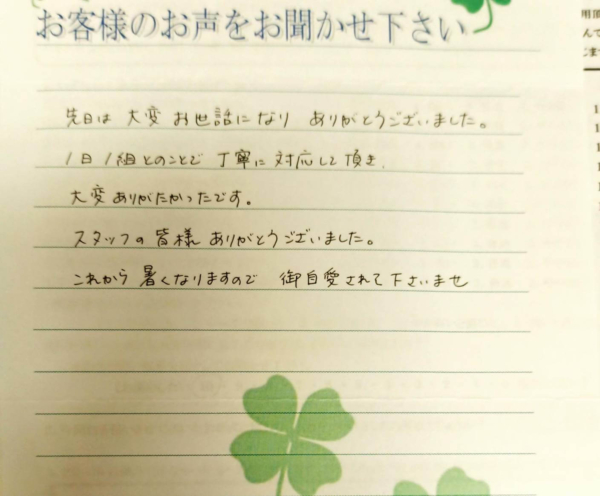 お客様のお声をお聞かせ下さい
先日は 大変 お世話になり ありがとうございました。
1日1組とのことで 丁寧に 対応して頂き
大変 ありがたかったです。
スタッフの 皆様 ありがとうございました。
これから 暑くなりますので 御自愛されて下さいませ